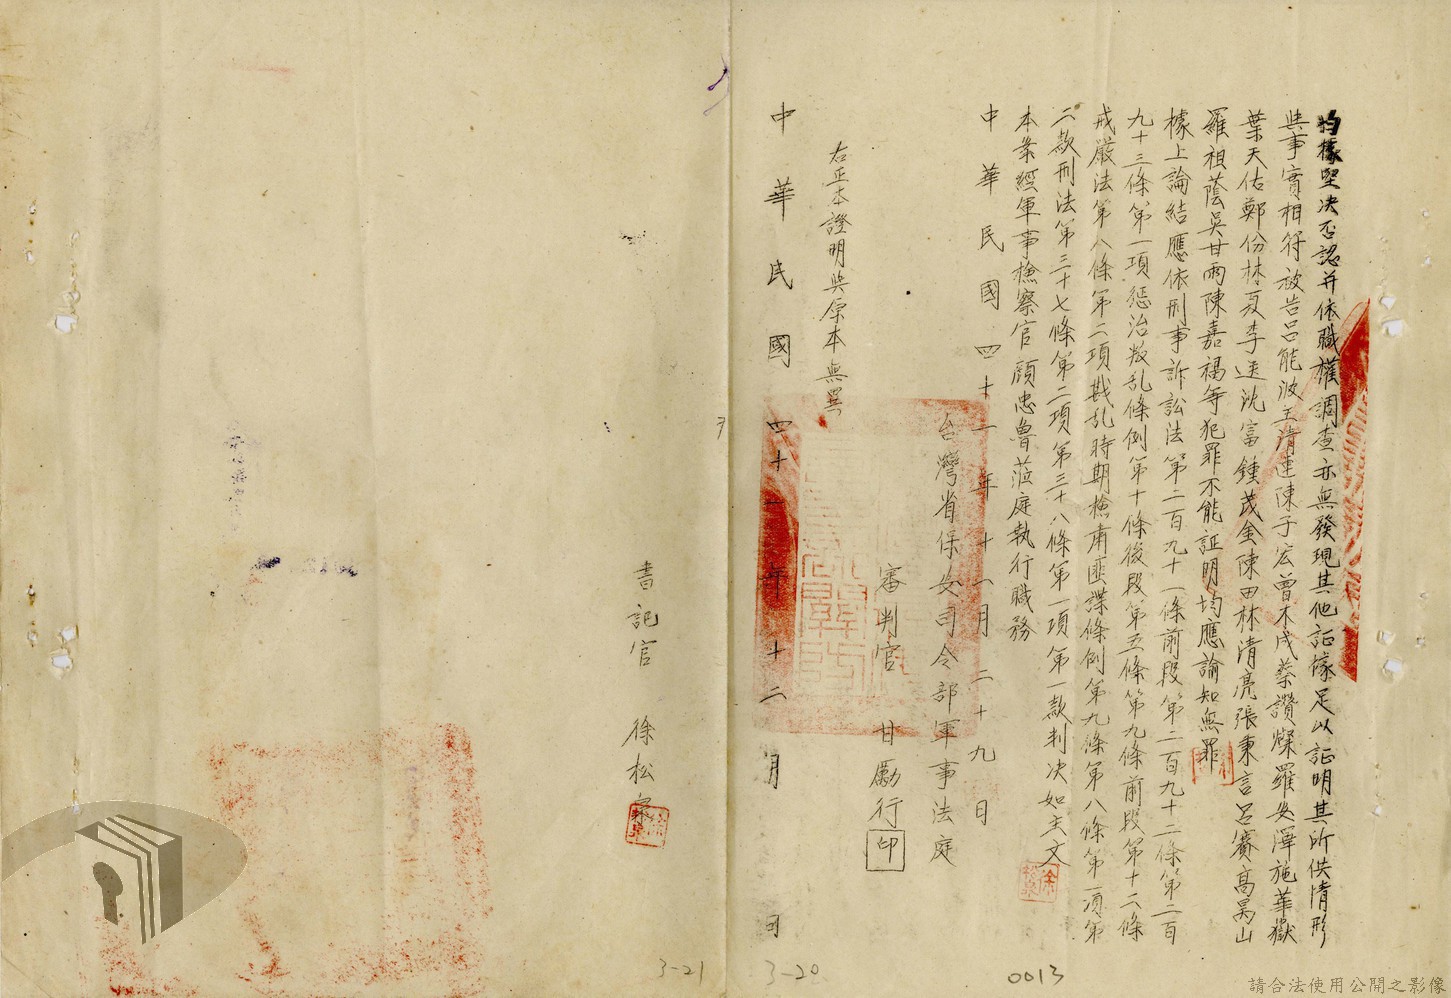 均據堅决否認并依職權調查亦無發現其他証據足以証明其所供情形
與事實相符被告呂能波王清連陳子宏曾木戊蔡讚燦羅安澤施華嶽
葉天佑鄭份林夏李逆沈富鍾茂金陳田林清亮張秉言呂賽高昺山
羅祖蔭吳甘雨陳嘉福等犯罪不能証明均應諭知無罪
據上論結應依刑事訴訟法第二百九十一條前段第二百九十二條第二百
九十三條第一項惩治叛乱條例第十條後段第五條第九條前段第十二條
戒嚴法第八條第二項戡乱時期檢肅匪諜條例第九條第八條第一項第
二款刑法第三十七條第二項第三十八條第一項第一款判决如主文
本案經軍事檢察官顧忠魯蒞庭執行職務
中華民國四十一年十一月二十九日
台灣省保安司令部軍事法庭
審判官 甘勵行 印
右正本證明與原本無異
中華民國四十一年十二月 日
書記官 徐松泉
3-20
0013
3-21
請合法使用公開之影像